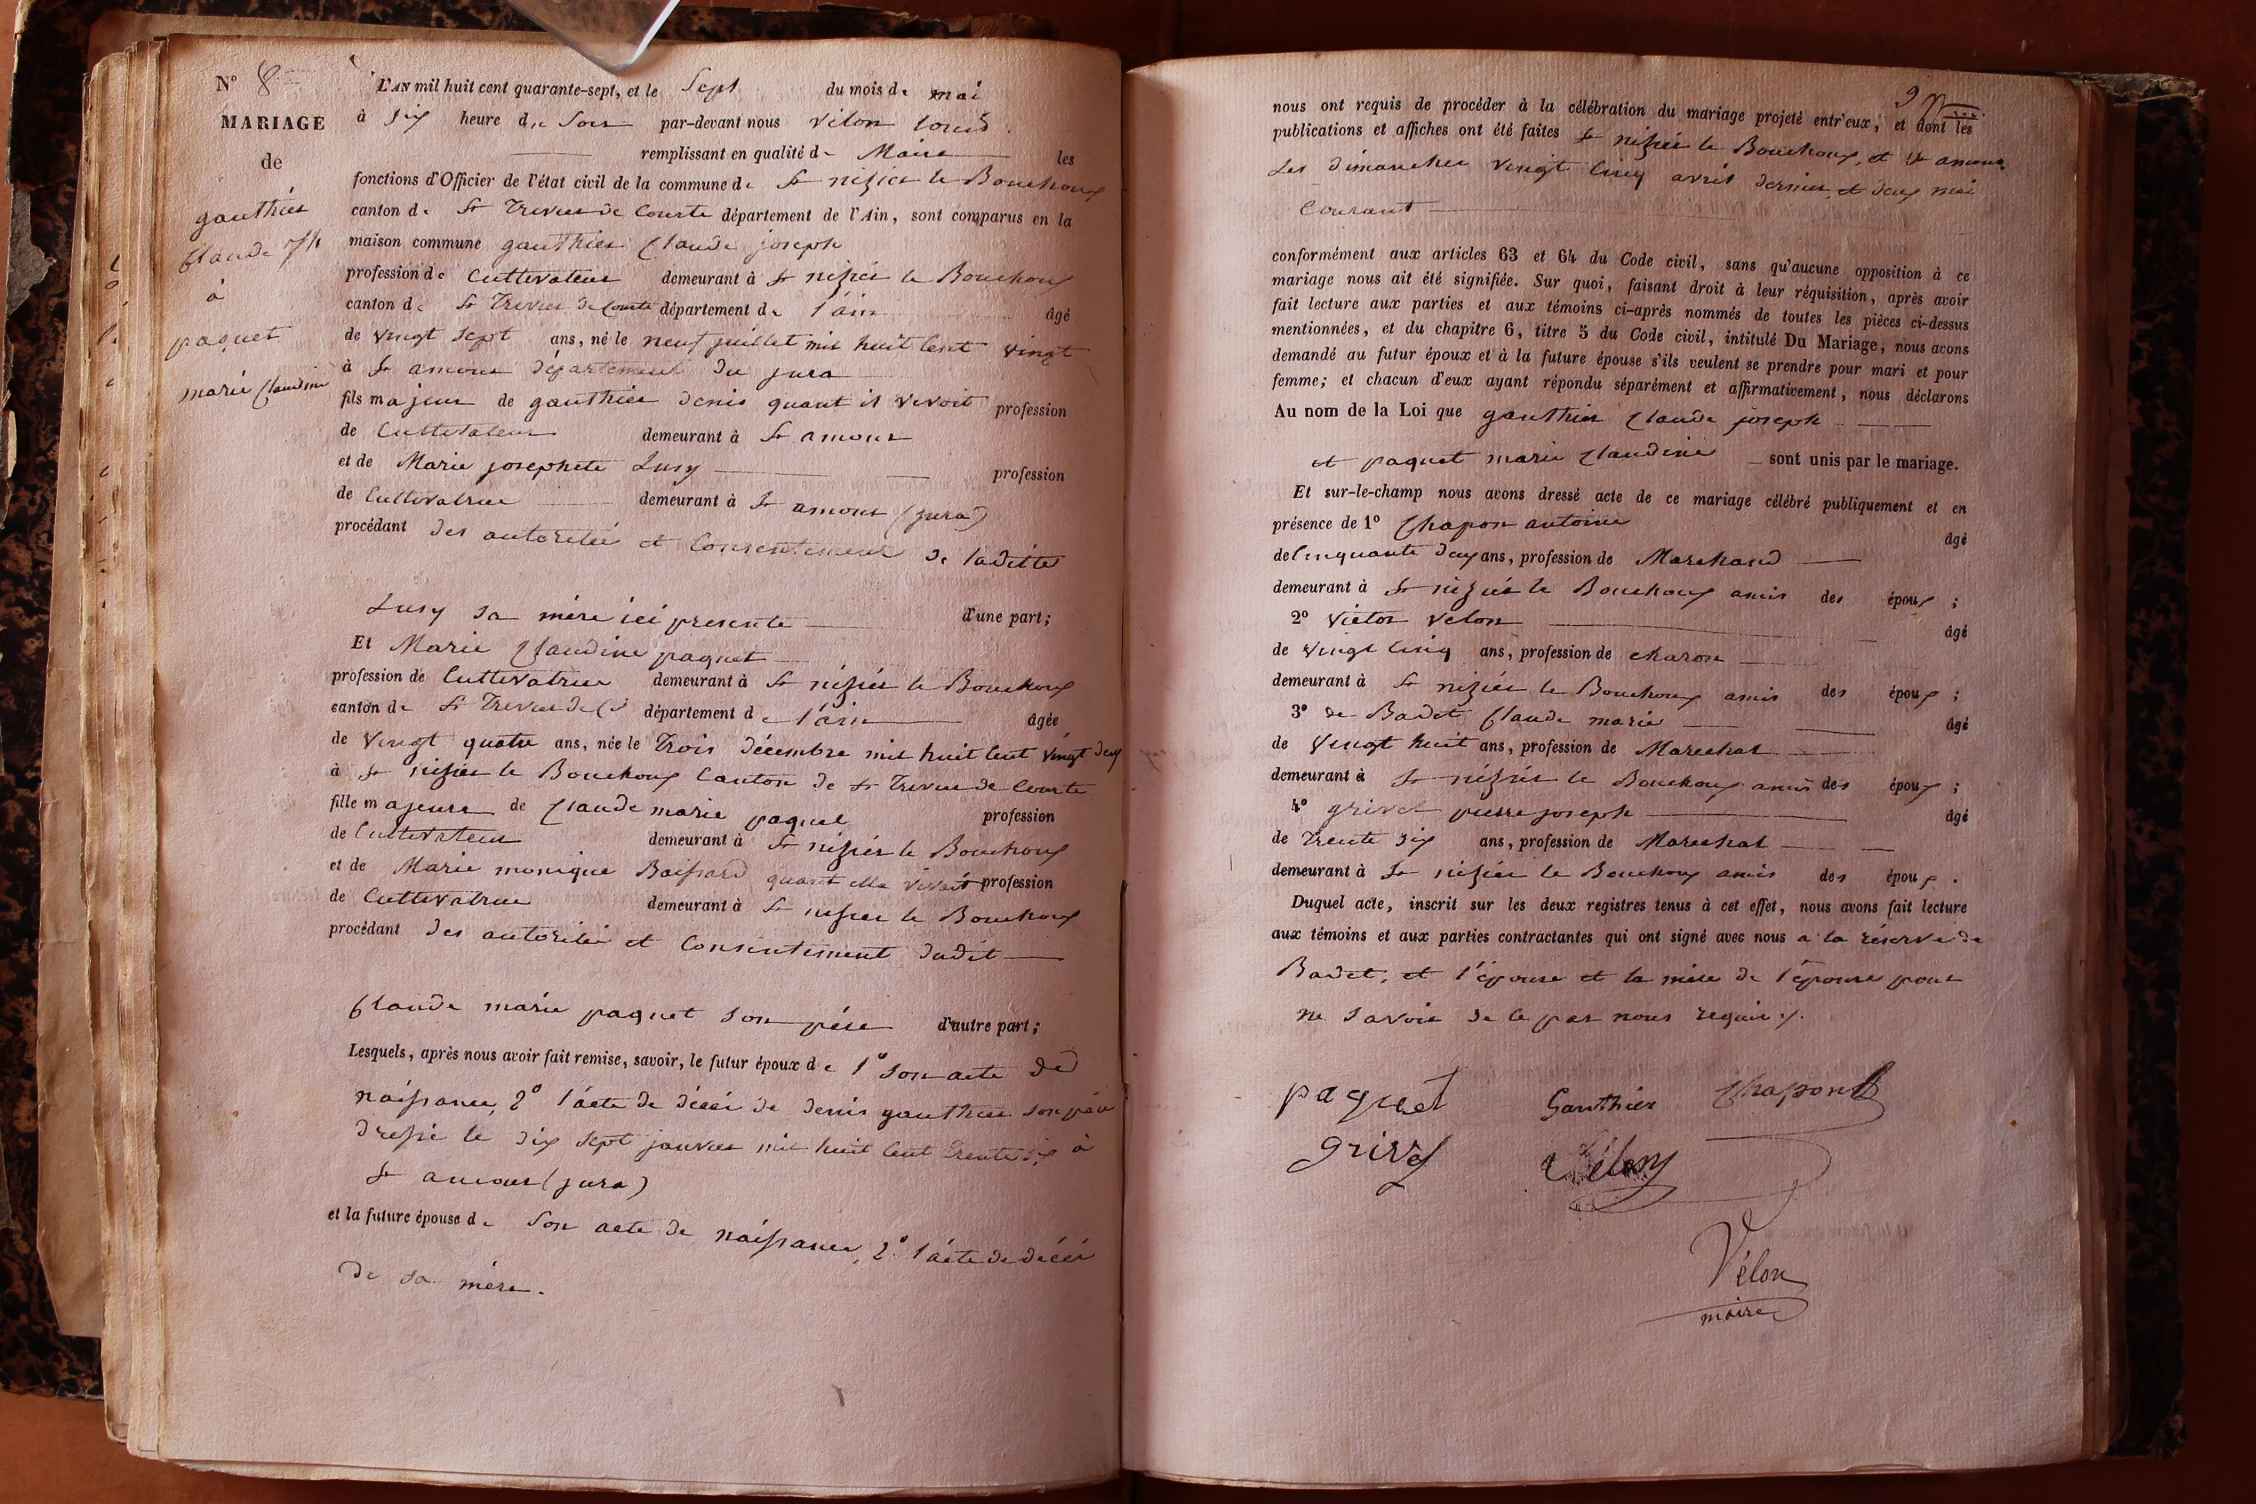 N° 8
MARIAGE
de
gauthier
Claude jh
à
paquet
marie Claudine
L'AN mil huit cent quarante-sept, et le Sept du mois de mai
à six heure du Soir par-devant nous vélon louis
remplissant en qualité de Maire les
fonctions d'Officier de l'état civil de la commune de St nizier le Bouchoux
canton de St Trevier de Courte département de l'Ain, sont comparus en la
maison commune gauthier Claude joseph
profession de Cultivateur demeurant à St nizier le Bouchoux
canton de St Trevier de Courte département de l'ain âgé
de vingt sept ans, né le neuf juillet mil huit Cent vingt
à St amour département du jura
fils majeur de gauthier denis quant il vivoit profession
de Cultivateur demeurant à St amour
et de Marie josephete Lusy profession
de Cultivatrice demeurant à St amour (jura)
procédant des autorités et Consentement de ladite
Lusy sa mère ici presente d'une part;
Et Marie Claudine paquet
profession de Cultivatrice demeurant à St nizier le Bouchoux
canton de St Trevier de Cte département de l'ain âgée
de vingt quatre ans, née le Trois décembre mil huit Cent vingt deux
à St nizier le Bouchoux Canton de St Trevier de Courte
fille majeure de Claude marie paquet profession
de Cultivateur demeurant à St nizier le Bouchoux
et de Marie monique Boissard quant elle vivoit profession
de Cultivatrice demeurant à St nizier le Bouchoux
procédant des autorités et Consentement dudit
Claude marie paquet son père d'autre part;
Lesquels, après nous avoir fait remise, savoir, le futur époux de 1° son acte de
naissance, 2° l'acte de décès de denis gauthier son père
dressé le dix sept janvier mil huit Cent trente six à
St amour (jura)
et la future épouse de son acte de naissance, 2° l'acte de décès
de sa mère.
9
nous ont requis de procéder à la célébration du mariage projeté entr'eux, et dont les
publications et affiches ont été faites St nizier le Bouchoux, et St amour
les dimanches vingt Cinq avril dernier et deux mai
Courant
conformément aux articles 63 et 64 du Code civil, sans qu'aucune opposition à ce
mariage nous ait été signifiée. Sur quoi, faisant droit à leur réquisition, après avoir
fait lecture aux parties et aux témoins ci-après nommés de toutes les pièces ci-dessus
mentionnées, et du chapitre 6, titre 5 du Code civil, intitulé Du Mariage, nous avons
demandé au futur époux et à la future épouse s'ils veulent se prendre pour mari et pour
femme; et chacun d'eux ayant répondu séparément et affirmativement, nous déclarons
Au nom de la Loi que gauthier Claude joseph
et paquet marie Claudine sont unis par le mariage.
Et sur-le-champ nous avons dressé acte de ce mariage célébré publiquement et en
présence de 1° Chapon antoine âgé
de Cinquante deux ans, profession de Marchand
demeurant à St nizier le Bouchoux amis des époux;
2° Victor Velon âgé
de vingt Cinq ans, profession de charon
demeurant à St nizier le Bouchoux amis des époux;
3° de Badet Claude marie âgé
de vingt huit ans, profession de Marechal
demeurant à St nizier le Bouchoux amis des époux;
4° grivel pierre joseph âgé
de Trente six ans, profession de Marechal
demeurant à St nizier le Bouchoux amis des époux.
Duquel acte, inscrit sur les deux registres tenus à cet effet, nous avons fait lecture
aux témoins et aux parties contractantes qui ont signé avec nous a la réserve de
Badet; et l'épouse et la mère de l'épouse pour
ne savoir de le par nous requis.
paquet Gauthier Chapon
grivel Vélon
Vélon
maire